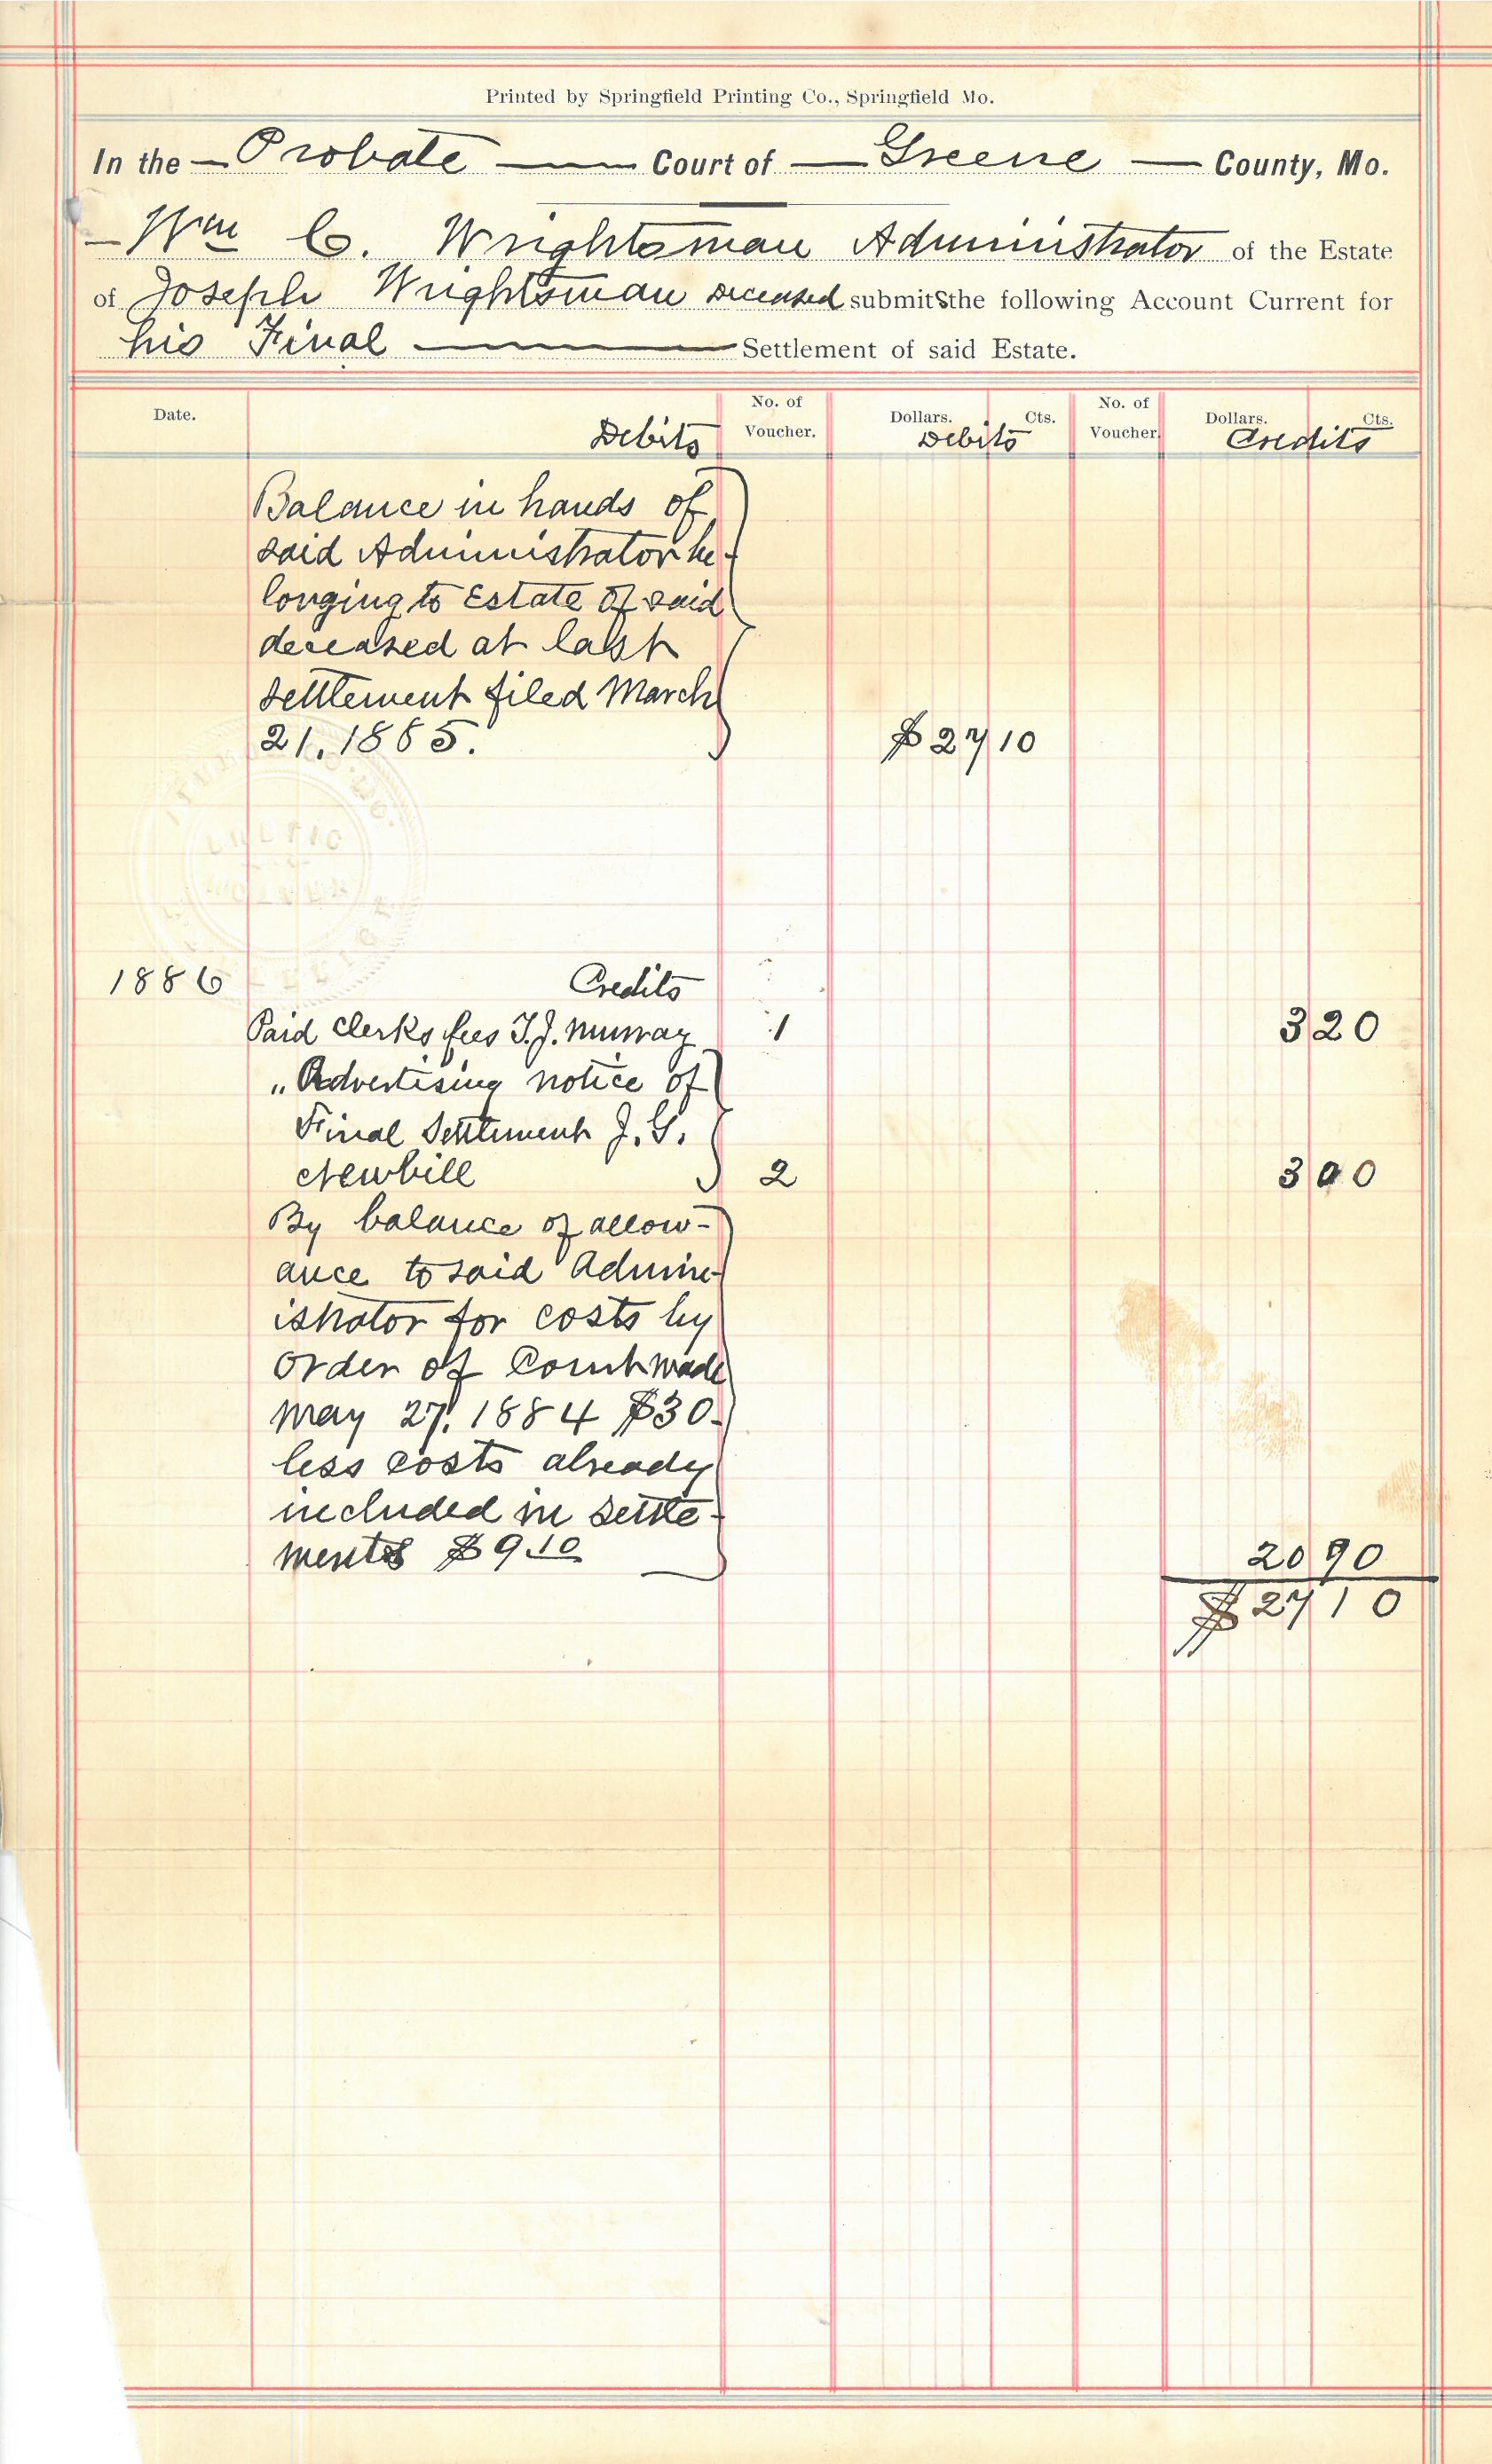 Printed by Springfield Printing Co., Springfield Mo.
In the Probate Court of Greene County, Mo.
Wm C. Wrightsman Administrator of the Estate
of Joseph Wrightsman deceased submits the following Account Current for
his Final Settlement of said Estate.
Date. No. of Voucher. Dollars. Cts. No. of Voucher. Dollars. Cts.
Debits Debits Credits
Balance in hands of
said Administrator be-
longing to Estate of said
deceased at last
settlement filed March
21, 1885. $27 10
1886 Credits
Paid clerks fees T.J. Murray 1 3 20
„ Advertising notice of
Final Settlement J. G.
Newbill 2 3 00
By balance of allow-
ance to said Admin-
istrator for costs by
order of Court made
May 27, 1884 $30-
less costs already
included in settle-
ments $9.10 20 90
$27 10